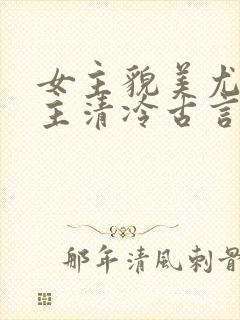 女主貌美尤
主清冷古言
那年清風刺骨